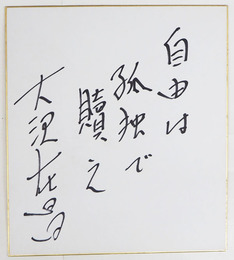 自由は
孤独で
贖え
大沢在昌